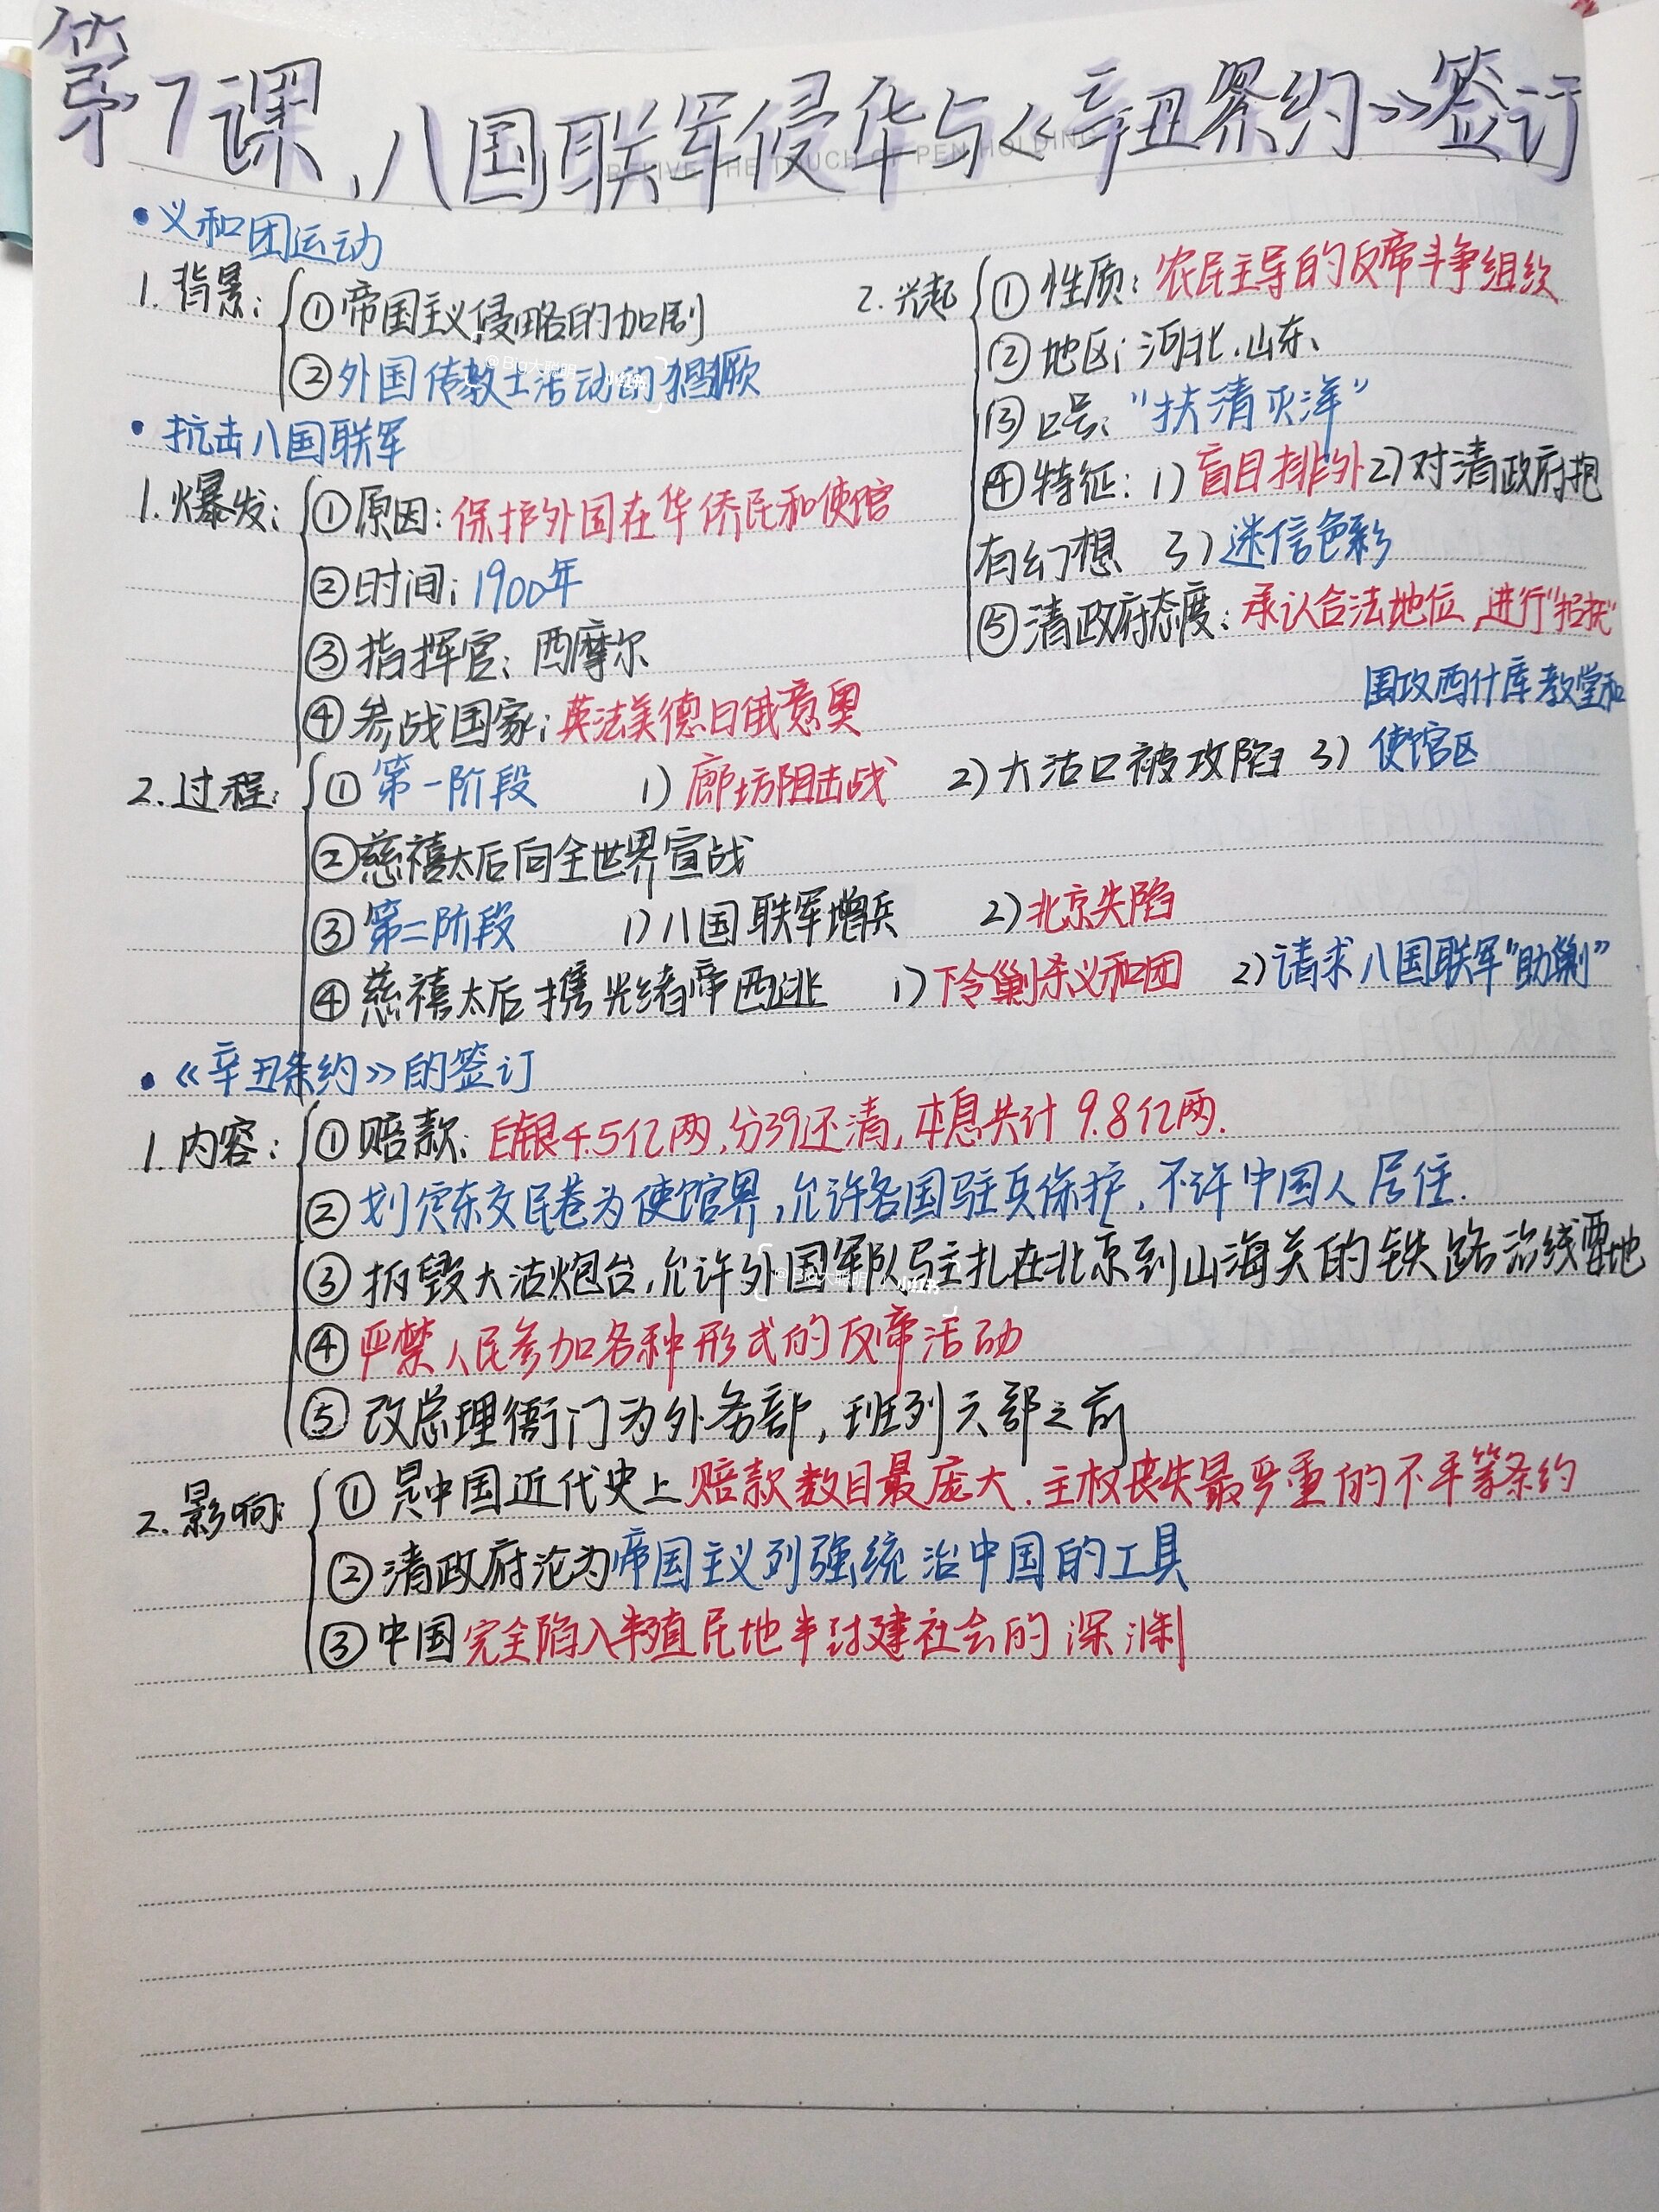 第7课、八国联军侵华与《辛丑条约》签订
REVIVE THE TOUCH OF PEN HOLDING
•义和团运动
1.背景:①帝国主义侵略的加剧
②外国传教士活动的猖獗
2.兴起①性质:农民主导的反帝斗争组织
②地区:河北、山东、
③口号:“扶清灭洋”
④特征:1)盲目排外2)对清政府抱
有幻想 3)迷信色彩
⑤清政府态度:承认合法地位,进行“招抚”
•抗击八国联军
1.爆发:①原因:保护外国在华侨民和使馆
②时间:1900年
③指挥官:西摩尔
④参战国家:英法美德日俄意奥
2.过程:①第一阶段 1)廊坊阻击战 2)大沽口被攻陷 3)围攻西什库教堂和
使馆区
②慈禧太后向全世界宣战
③第二阶段 1)八国联军增兵 2)北京失陷
④慈禧太后携光绪帝西逃 1)下令剿杀义和团 2)请求八国联军“助剿”
•《辛丑条约》的签订
1.内容:①赔款:白银4.5亿两,分39还清,本息共计9.8亿两.
②划定东交民巷为使馆界,允许各国驻兵保护,不许中国人居住.
③拆毁大沽炮台,允许外国军队驻扎在北京到山海关的铁路沿线要地
④严禁人民参加各种形式的反帝活动
⑤改总理衙门为外务部,班列六部之前
2.影响:①是中国近代史上赔款数目最庞大、主权丧失最严重的不平等条约
②清政府沦为帝国主义列强统治中国的工具
③中国完全陷入半殖民地半封建社会的深渊
@Big大聪明
小红书
@Big大聪明
小红书